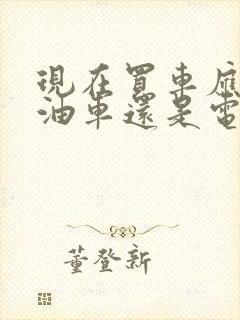 現在買車應
油車還是電
董登新